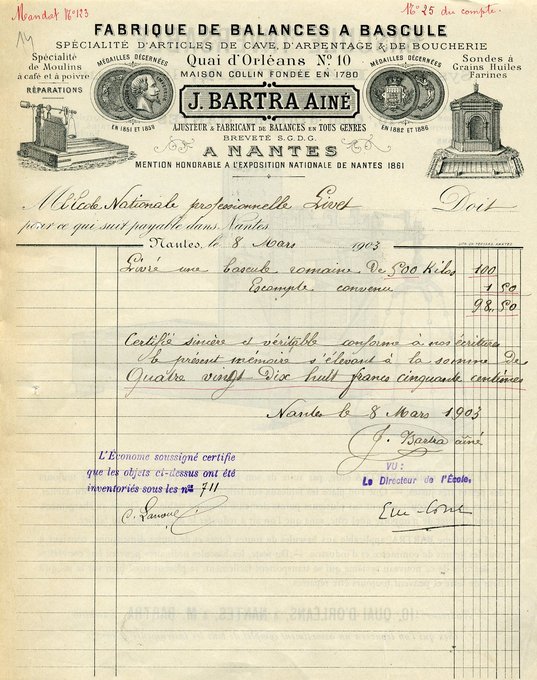 Mandat N° 123
N° 25 du compte.
14
FABRIQUE DE BALANCES A BASCULE
SPÉCIALITÉ D'ARTICLES DE CAVE, D'ARPENTAGE & DE BOUCHERIE
Spécialité
de Moulins
à café et à poivre
RÉPARATIONS
MÉDAILLES DÉCERNÉES
EN 1851 ET 1859
Quai d'Orléans N° 10
MAISON COLLIN FONDÉE EN 1780
J. BARTRA AINÉ
AJUSTEUR & FABRICANT DE BALANCES EN TOUS GENRES
BREVETÉ S.G.D.G.
A NANTES
MENTION HONORABLE A L'EXPOSITION NATIONALE DE NANTES 1861
MÉDAILLES DÉCERNÉES
EN 1882 ET 1886
Sondes à
Grains Huiles
Farines
M l'École Nationale professionnelle Livet Doit
pour ce qui suit payable dans Nantes
Nantes, le 8 Mars 1903
Livré une bascule romaine De 500 Kilos 100
Escompte convenu 1 50
98,50
Certifié sincère et véritable conforme à nos écritures
le présent mémoire s'élevant à la somme de
Quatre vingt Dix huit francs cinquante centimes
Nantes le 8 Mars 1903
J. Bartra aîné
L'Économe soussigné certifie
que les objets ci-dessus ont été
inventoriés sous les nos 711
VU :
Le Directeur de l'École,